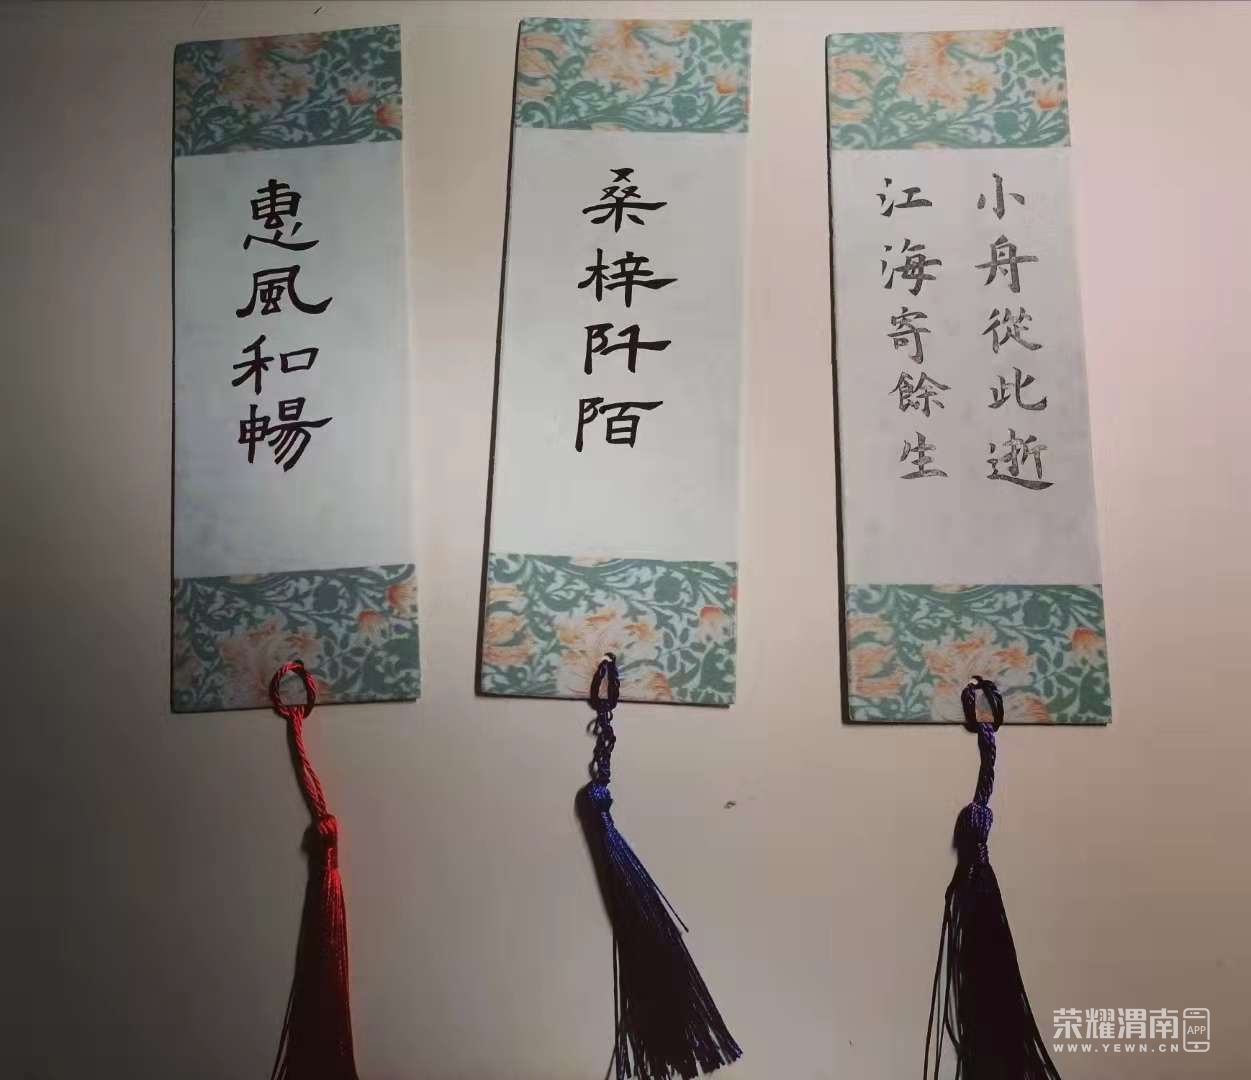 惠風和暢
桑梓阡陌
小舟從此逝
江海寄餘生
荣耀渭南
APP
WWW.YEWN.CN